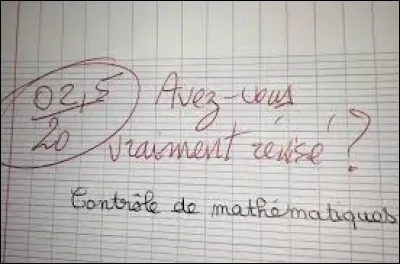 02,5
20
Avez-vous
vraiment révisé ?
Contrôle de mathématiques